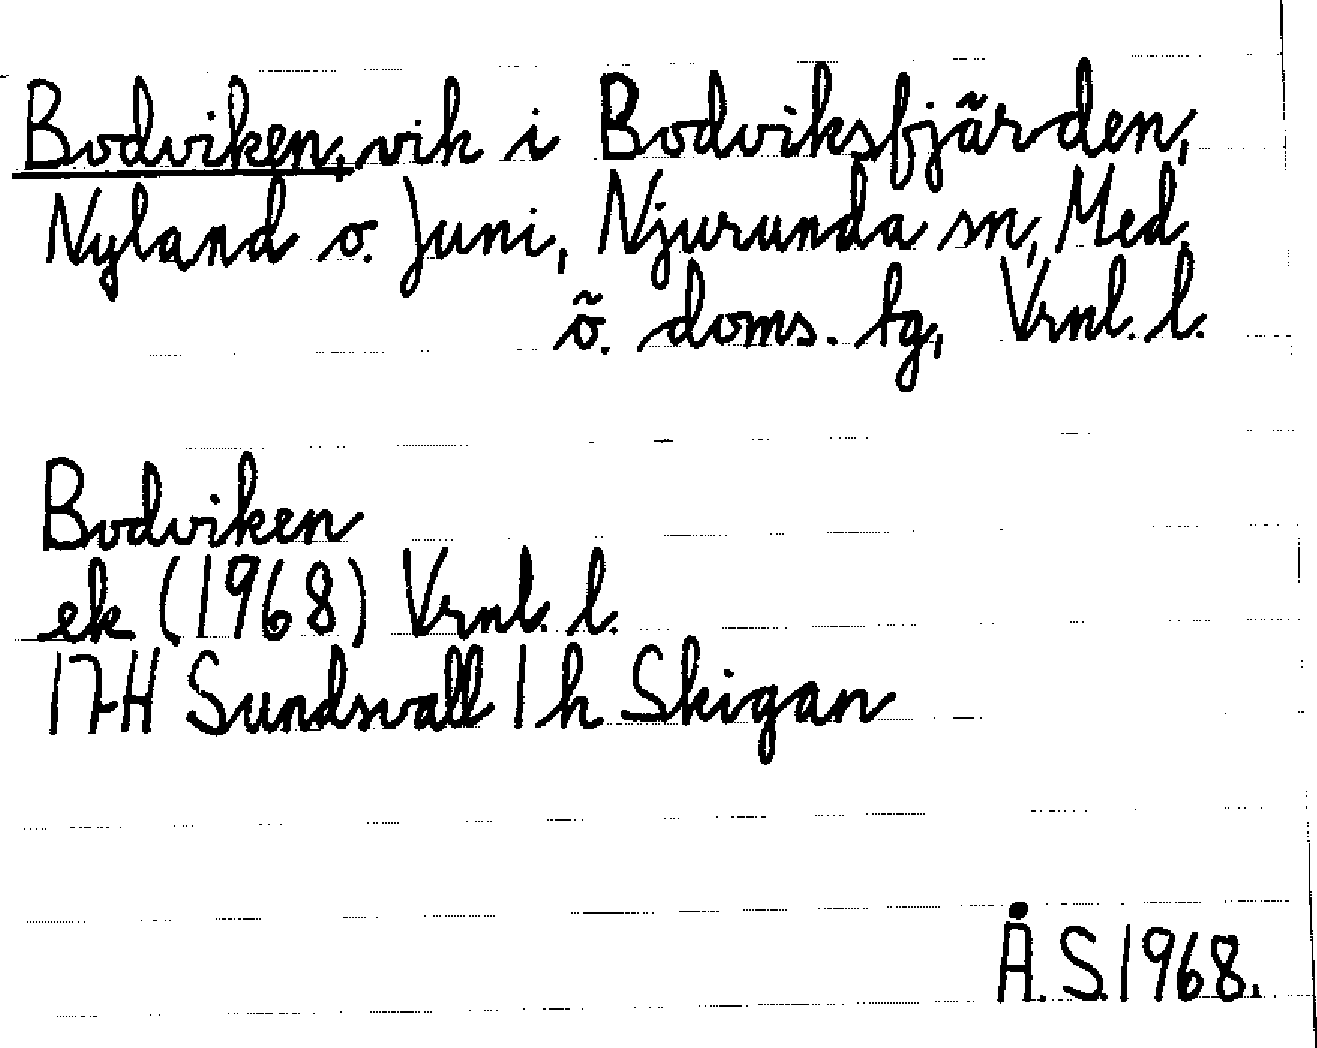 Bodviken, vik i Bodviksfjärden,
Nyland o. Juni, Njurunda sn, Med.
ö. doms. tg, Vrnl. l.
Bodviken
ek (1968) Vrnl. l.
17H Sundsvall 1 h Skigan
Å.S. 1968.